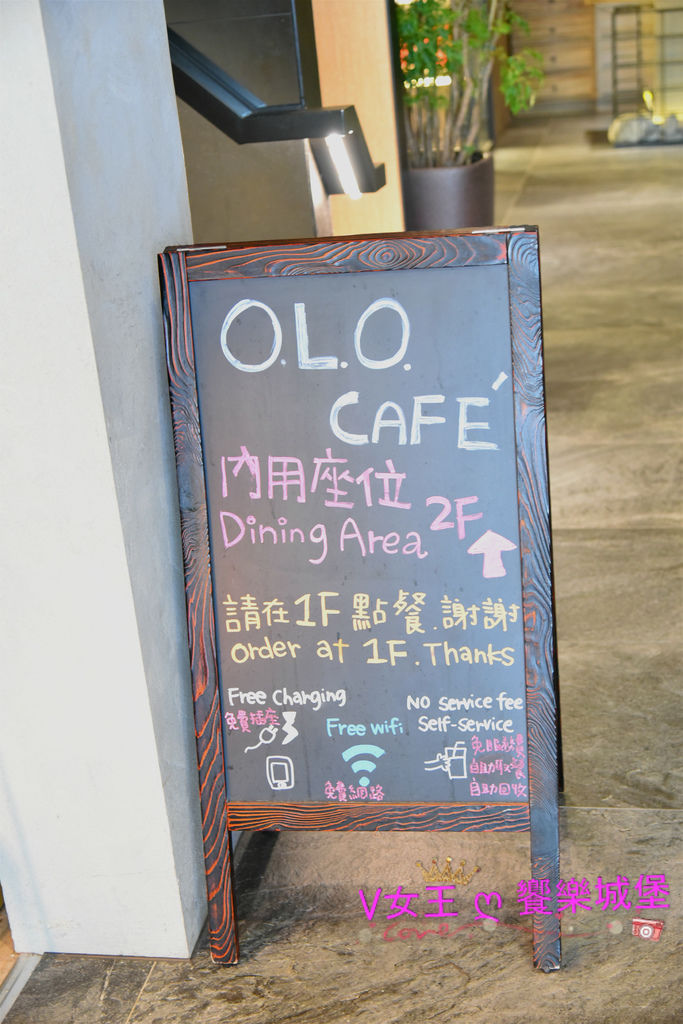 O.L.O.
CAFÉ
內用座位
2F
Dining Area
請在1F點餐.謝謝
order at 1F. Thanks
Free Charging
免費插座
Free wifi
免費網路
NO Service fee
Self-service
免服務費
自助取餐
自助回收
V女王ღ饗樂城堡